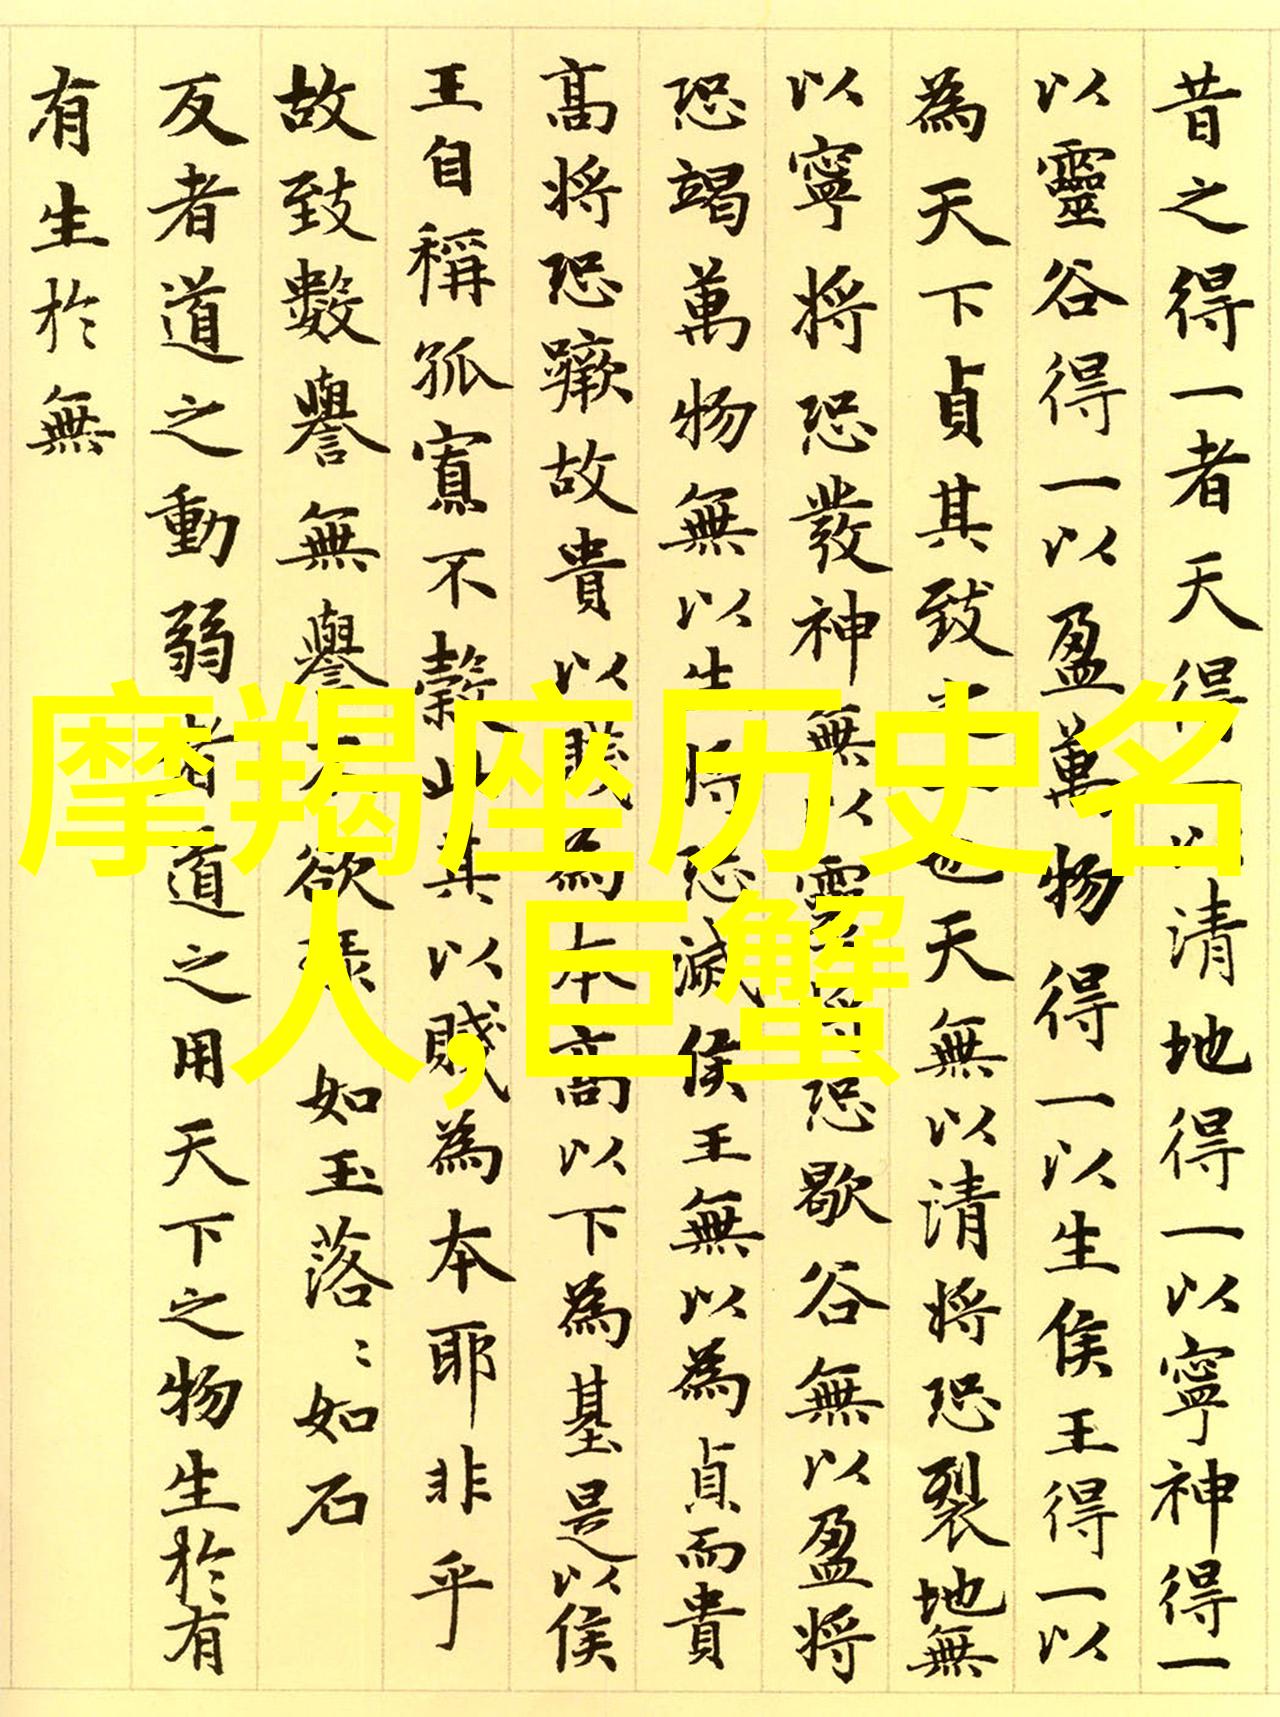 昔之得一者天得一以清地得一以寧神得一
以靈谷得一以盈萬物得一以生侯王得一以
為天下貞其致也天無以清將恐裂地無
以寧將恐發神無以靈將恐歇谷無以盈將
恐竭萬物無以生將恐滅侯王無以為貞而貴
高將恐蹶故貴以賤為本高以下為基是以侯
王自稱孤寡不穀此其以賤為本耶非乎
故致數譽無譽不欲琭如玉落〻如石
反者道之動弱者道之用天下之物生於有
有生於無
摩羯座历史名
人,巨蟹